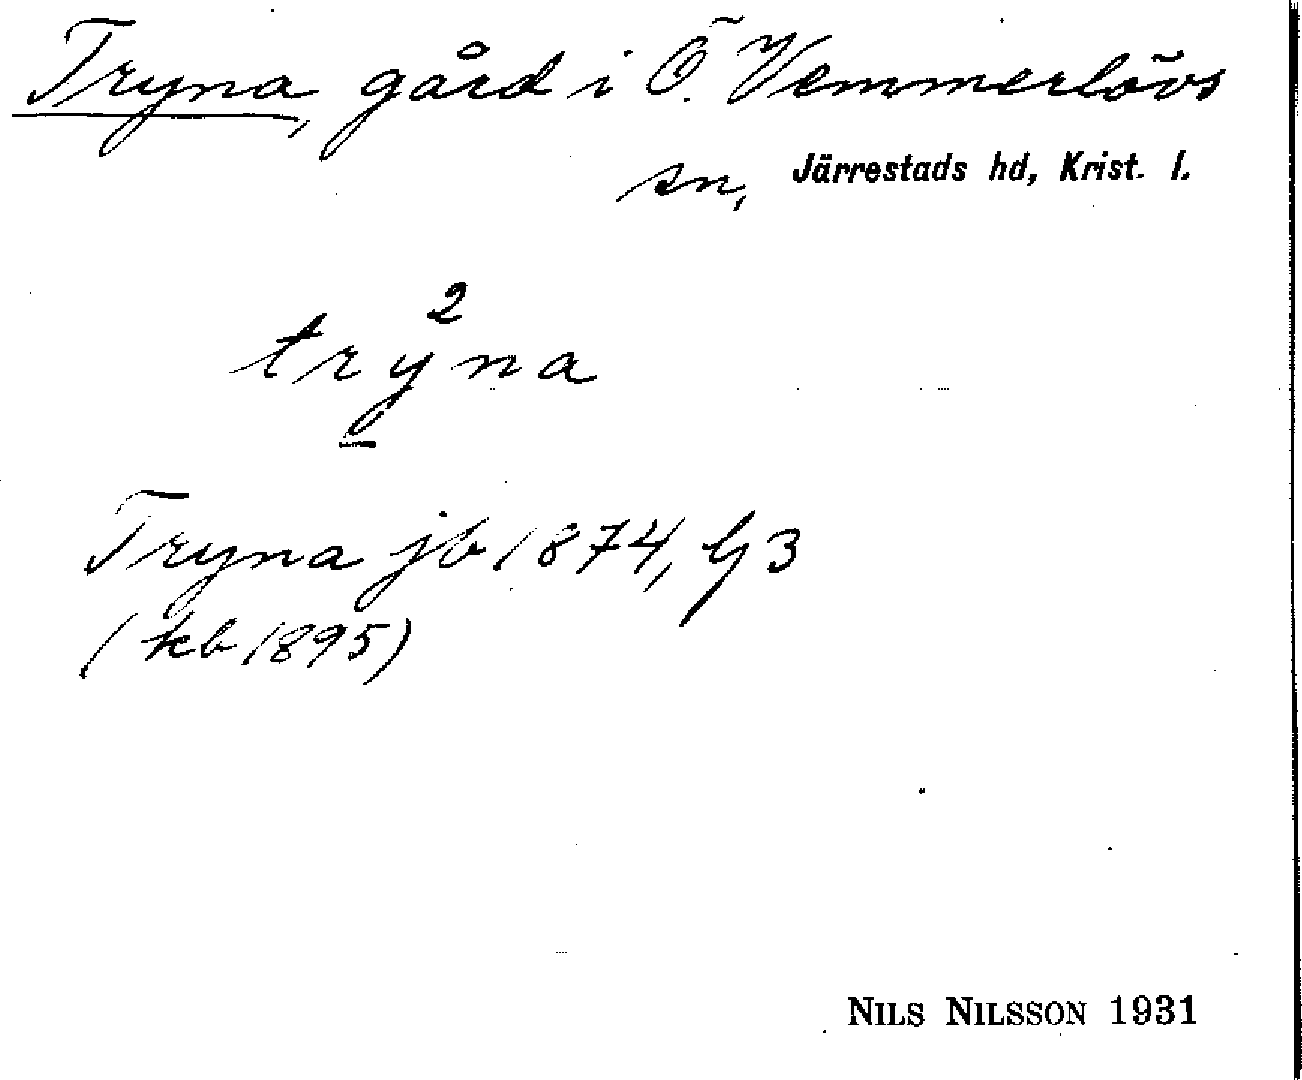 Tryna, gård i Ö. Vemmerlövs
sn, Järrestads hd, Krist. l.
2
tryna
Tryna jb 1874, G 3
(kb 1895)
NILS NILSSON 1931